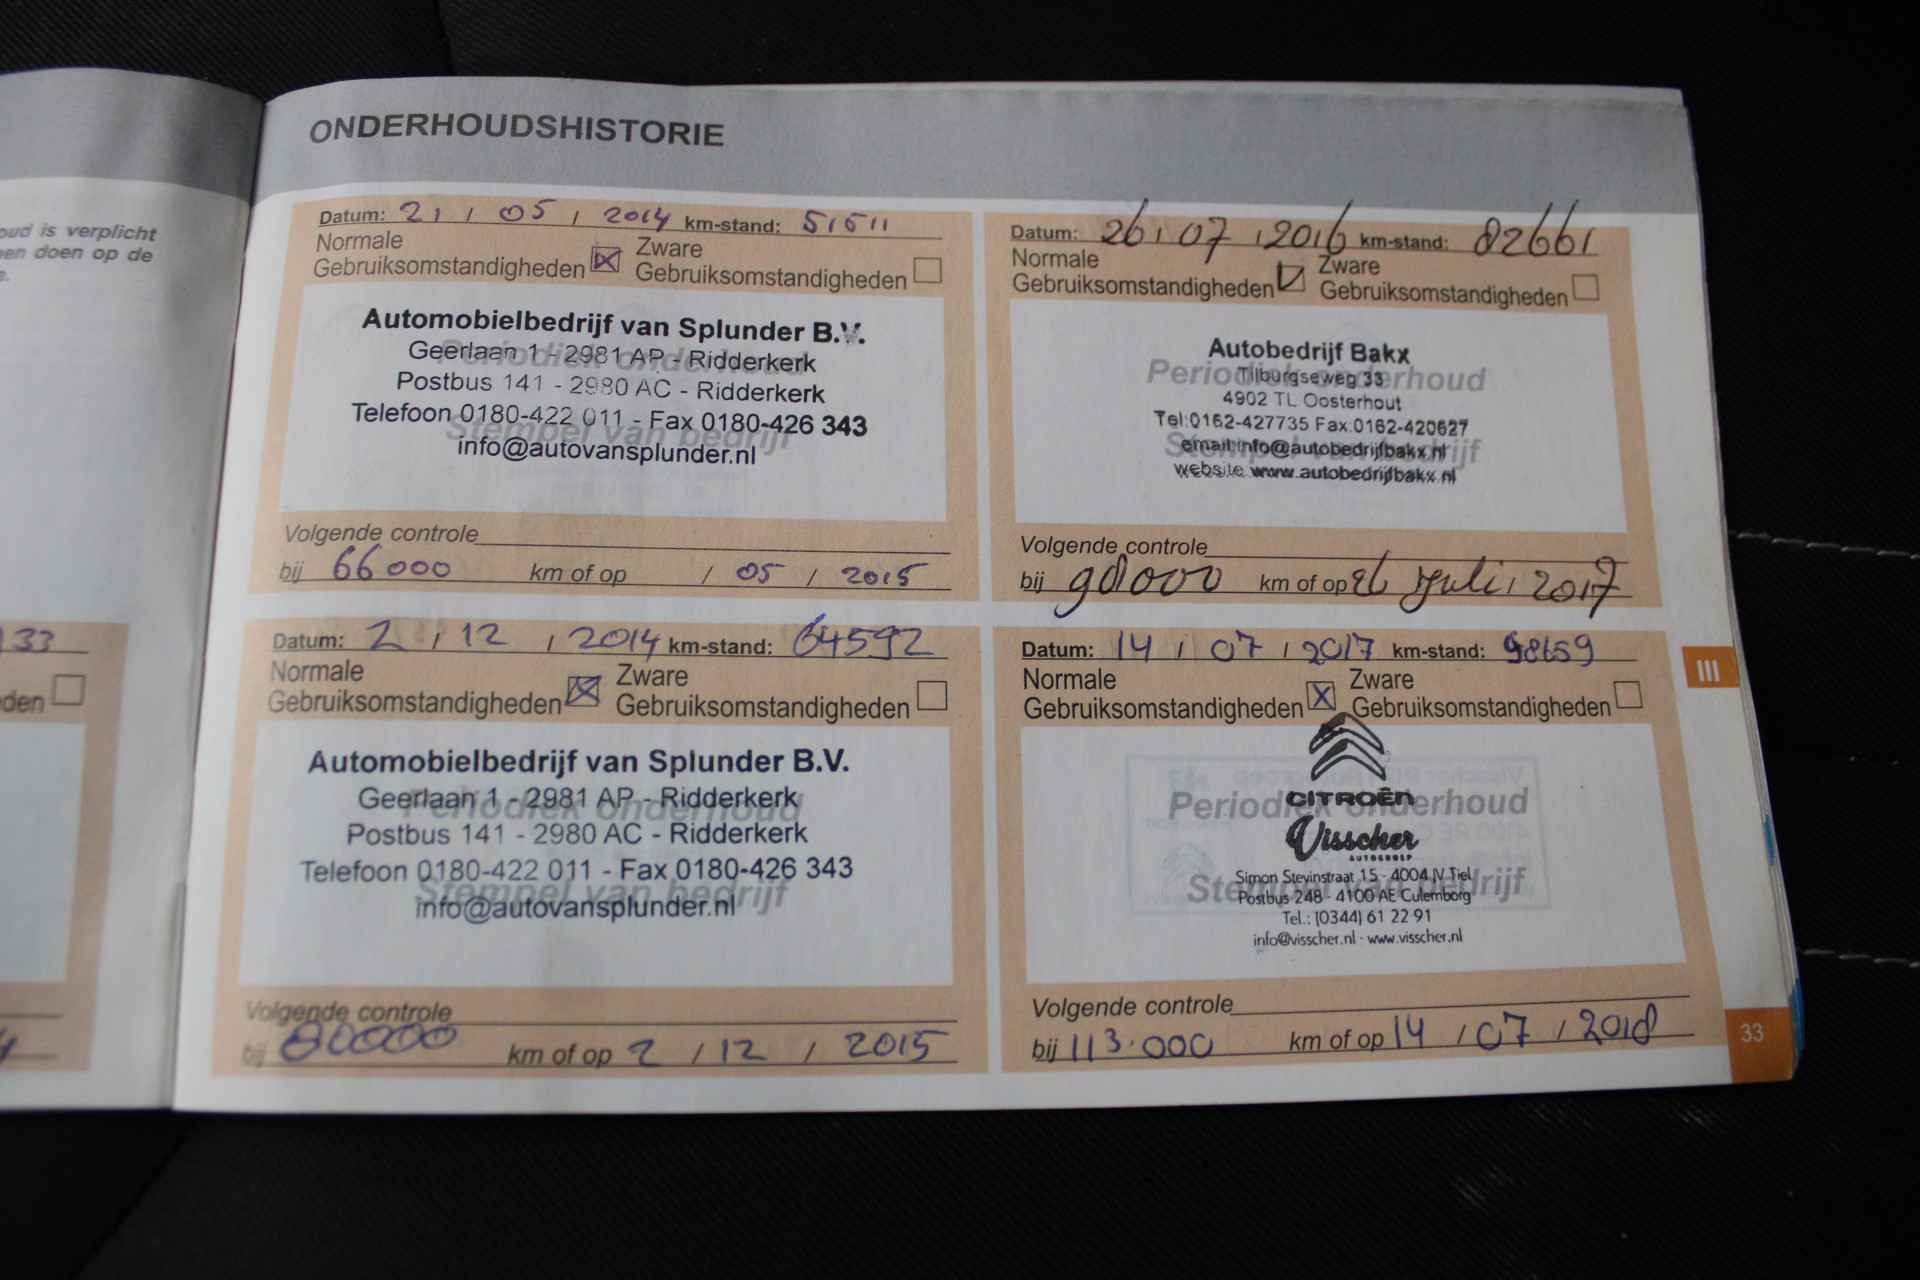 oud is verplicht
en doen op de
e.
133
den
ONDERHOUDSHISTORIE
Datum: 21 / 05 / 2014 km-stand: 51511
Normale Zware
Gebruiksomstandigheden Gebruiksomstandigheden
Automobielbedrijf van Splunder B.V.
Geerlaan 1 - 2981 AP - Ridderkerk
Periodiek onderhoud
Postbus 141 - 2980 AC - Ridderkerk
Telefoon 0180-422 011 - Fax 0180-426 343
Stempel van bedrijf
info@autovansplunder.nl
Volgende controle
bij 66000 km of op / 05 / 2015
Datum: 2 / 12 / 2014 km-stand: 64592
Normale Zware
Gebruiksomstandigheden Gebruiksomstandigheden
Automobielbedrijf van Splunder B.V.
Geerlaan 1 - 2981 AP - Ridderkerk
Periodiek onderhoud
Postbus 141 - 2980 AC - Ridderkerk
Telefoon 0180-422 011 - Fax 0180-426 343
Stempel van bedrijf
info@autovansplunder.nl
Volgende controle
bij 80000 km of op 2 / 12 / 2015
Datum: 26 / 07 / 2016 km-stand: 82661
Normale Zware
Gebruiksomstandigheden Gebruiksomstandigheden
Autobedrijf Bakx
Periodiek onderhoud
Tilburgseweg 33
4902 TL Oosterhout
Tel:0162-427735 Fax:0162-420627
Stempel van bedrijf
email:info@autobedrijfbakx.nl
website www.autobedrijfbakx.nl
Volgende controle
bij 98000 km of op 26 juli / 2017
Datum: 14 / 07 / 2017 km-stand: 98659
Normale Zware
Gebruiksomstandigheden Gebruiksomstandigheden
CITROËN
Periodiek onderhoud
Visscher
AUTOGROEP
Simon Stevinstraat 15 - 4004 JV Tiel
Stempel van bedrijf
Postbus 248 - 4100 AE Culemborg
Tel.: (0344) 61 22 91
info@visscher.nl - www.visscher.nl
Volgende controle
bij 113.000 km of op 14 / 07 / 2018
III
33